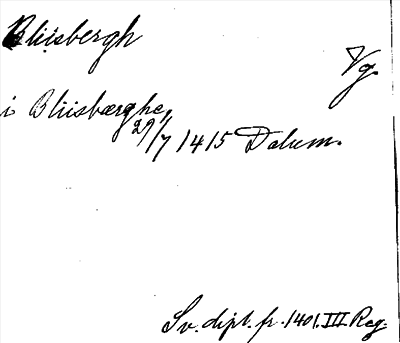 Bliisbergh
Vg.
i Bliisbærghe,
29/7 1415 Dalum.
Sv. dipl. fr. 1401. III Reg.